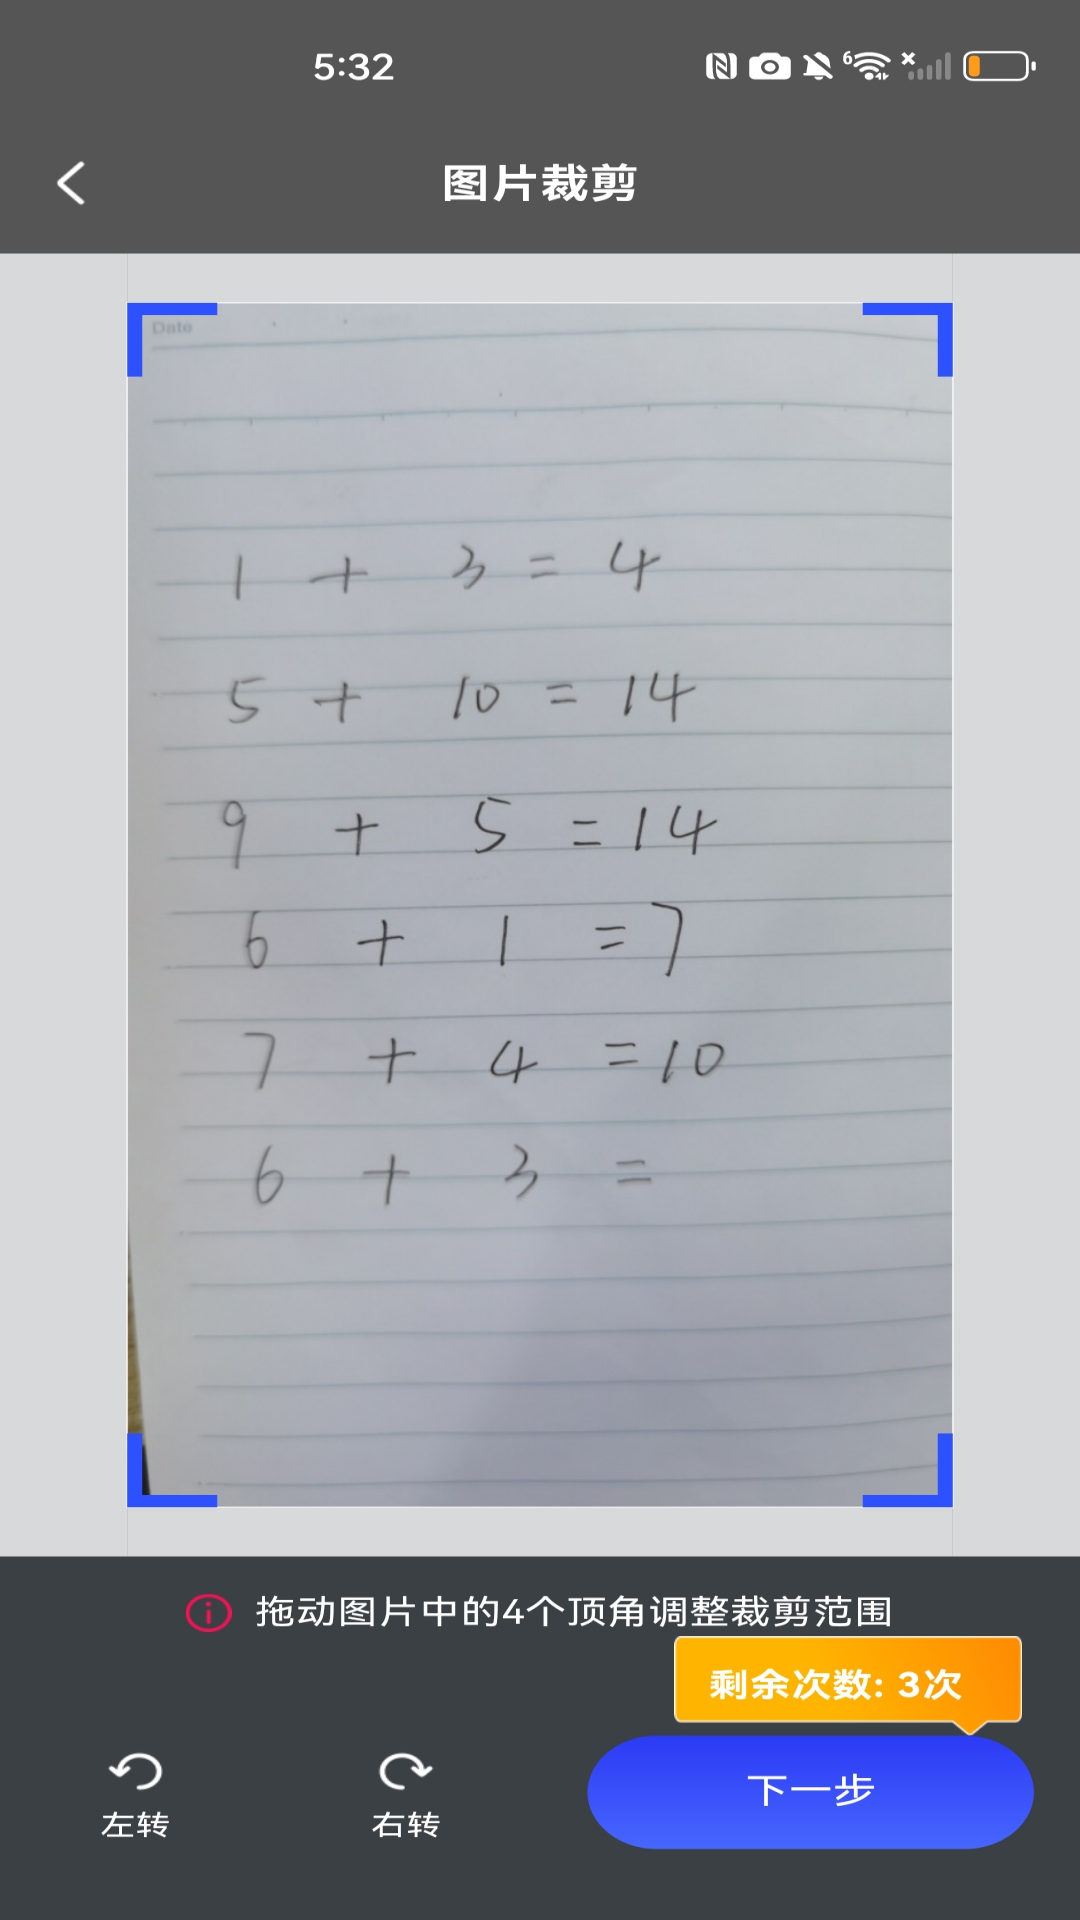 5:32
图片裁剪
Date
1 + 3 = 4
5 + 10 = 14
9 + 5 = 14
6 + 1 = 7
7 + 4 = 10
6 + 3 =
拖动图片中的4个顶角调整裁剪范围
剩余次数: 3次
左转
右转
下一步